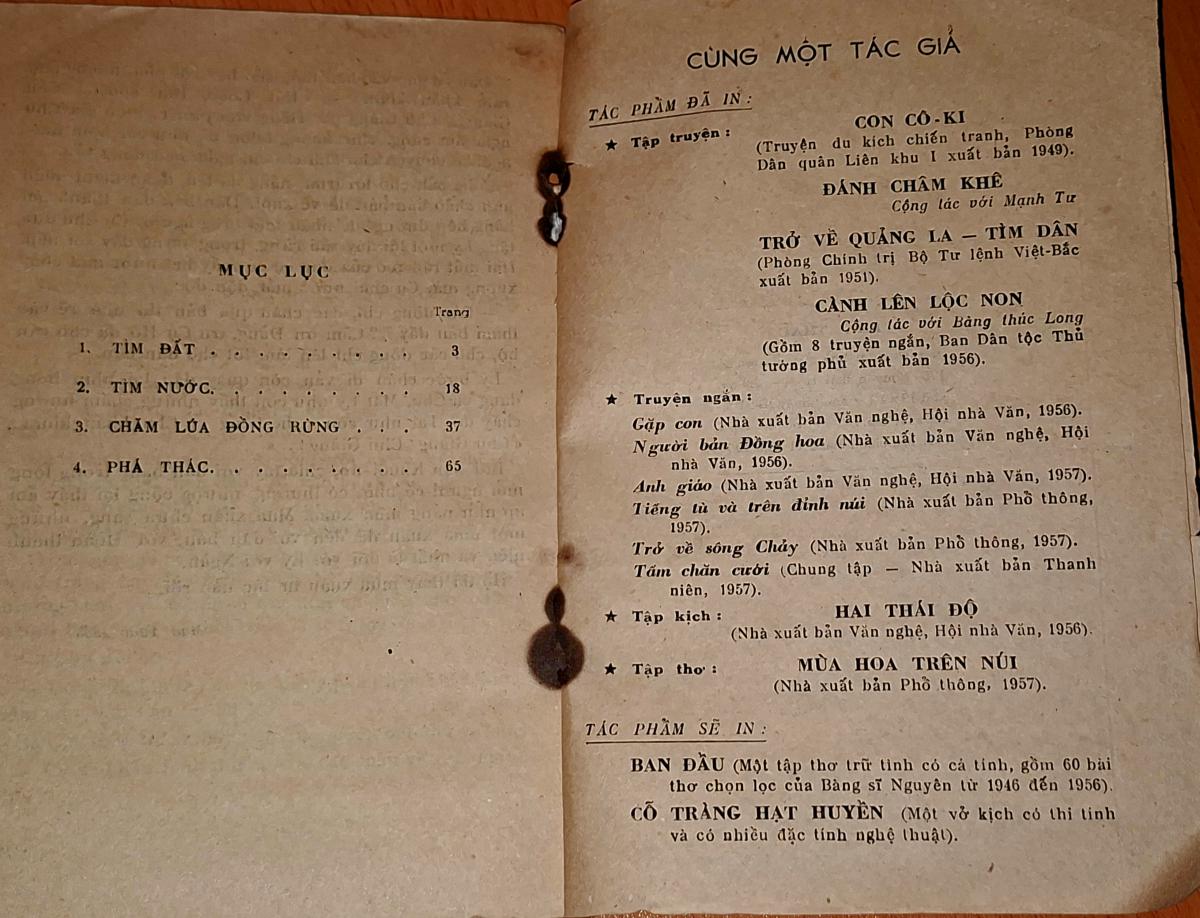 MỤC LỤC
Trang
1. TÌM ĐẤT . . . . . . . . . 3
2. TÌM NƯỚC. . . . . . . . . 18
3. CHĂM LÚA ĐỒNG RỪNG . . . 37
4. PHÁ THÁC. . . . . . . . . 65
CÙNG MỘT TÁC GIẢ
TÁC PHẨM ĐÃ IN :
★ Tập truyện :
CON CÔ-KI
(Truyện du kích chiến tranh, Phòng
Dân quân Liên khu I xuất bản 1949).
ĐÁNH CHÂM KHÊ
Cộng tác với Mạnh Tư
TRỞ VỀ QUẢNG LA — TÌM DÂN
(Phòng Chính trị Bộ Tư lệnh Việt-Bắc
xuất bản 1951).
CÀNH LÊN LỘC NON
Cộng tác với Bàng thúc Long
(Gồm 8 truyện ngắn, Ban Dân tộc Thủ
tướng phủ xuất bản 1956).
★ Truyện ngắn :
Gặp con (Nhà xuất bản Văn nghệ, Hội nhà Văn, 1956).
Người bản Đồng hoa (Nhà xuất bản Văn nghệ, Hội
nhà Văn, 1956).
Anh giáo (Nhà xuất bản Văn nghệ, Hội nhà Văn, 1957).
Tiếng tù và trên đỉnh núi (Nhà xuất bản Phổ thông,
1957).
Trở về sông Chảy (Nhà xuất bản Phổ thông, 1957).
Tấm chăn cưới (Chung tập — Nhà xuất bản Thanh
niên, 1957).
★ Tập kịch :
HAI THÁI ĐỘ
(Nhà xuất bản Văn nghệ, Hội nhà Văn, 1956).
★ Tập thơ :
MÙA HOA TRÊN NÚI
(Nhà xuất bản Phổ thông, 1957).
TÁC PHẨM SẼ IN :
BAN ĐẦU (Một tập thơ trữ tình có cá tính, gồm 60 bài
thơ chọn lọc của Bàng sĩ Nguyên từ 1946 đến 1956).
CỖ TRÀNG HẠT HUYỀN (Một vở kịch có thi tính
và có nhiều đặc tính nghệ thuật).